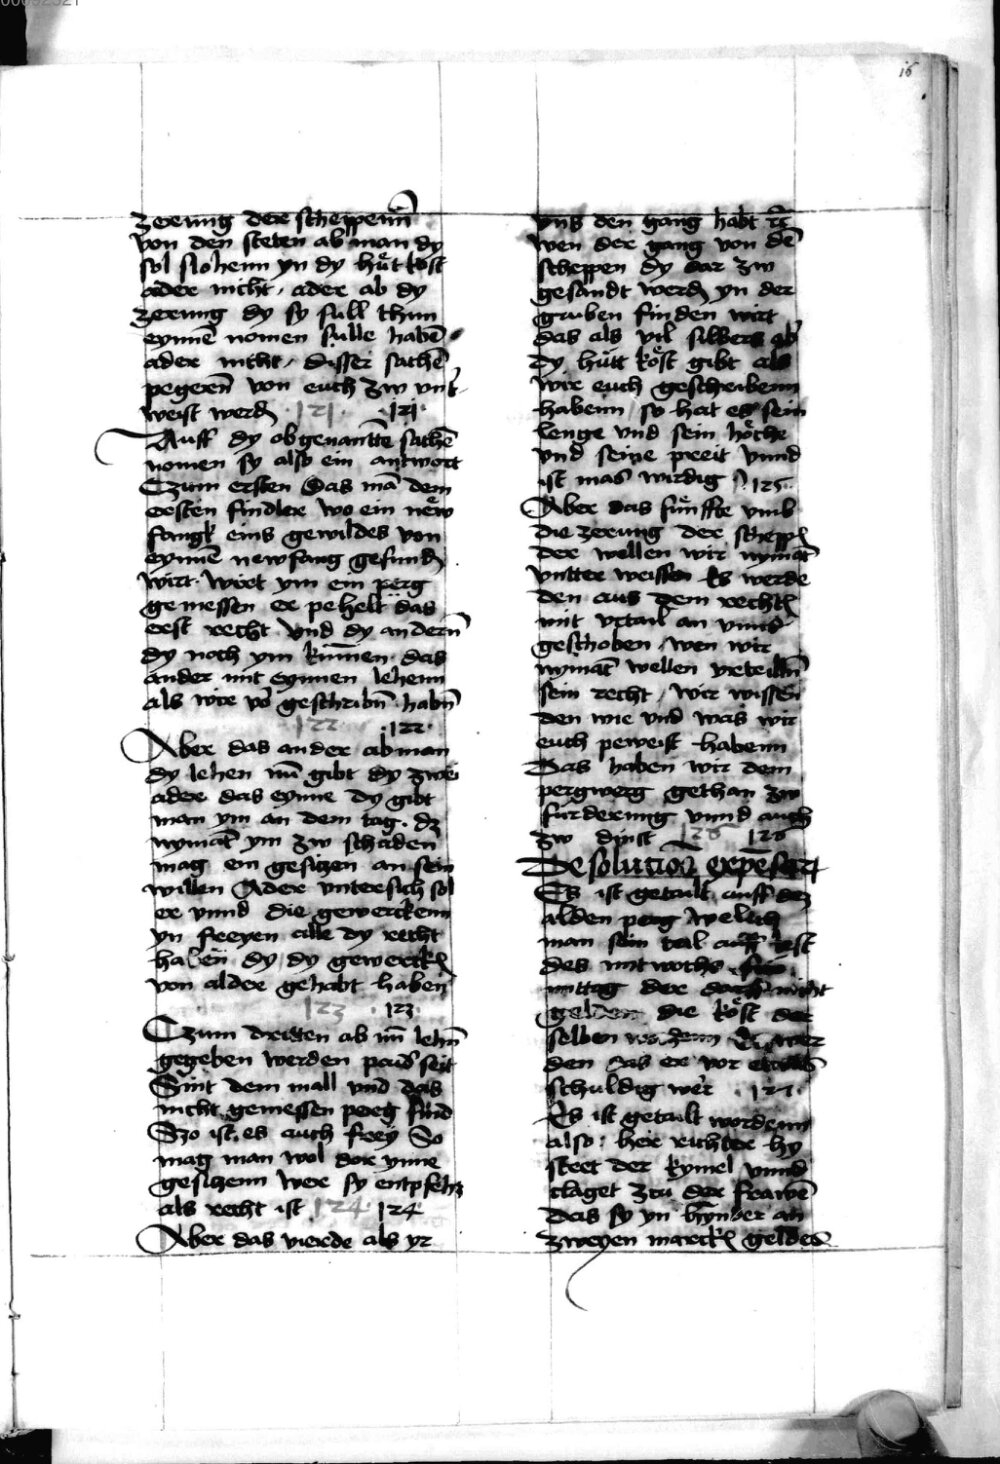 16
zerung der scheppenn̄
von den steten ab man dy
sol slohenn yn dy hüt kost
ader nicht, ader ab dy
zerung dy sy süll thun
eynnē nomen sülle habē
ader nicht, disser sachē
pegerñ von euch zw vnt
weist werdē 121 · 121 ·
Auff dy obgenantte sachē
nomen sy also ein antwort
Czum ersten Das mā dem
ersten findler wo ein new
fangk eins gewildes von
eynnē newfang gefundē
wirt · wirt ym ein perg
gemessen er pehelt das
erst recht Vnd dy andern̄
dy noch ym kum̄en das
ander mit eynnen lehenn
als wir vor geschribn̄ habn̄
122 · 122 ·
Aber das ander ab man
dy lehen nū gibt dy zwei
ader das eynne Dy gibt
man ym an dem tag · dz
nymāt ym zw schaden
mag ein gesiczen an sein
willen Ader vntersich sol
er vnnd die gewerckenn
yn freyen alle dy recht
haben dy dy gewerckē
von alder gehabt haben
123 · 123 ·
Czum dritten ab nū lehn̄
gegeben werden paid seit
Sint dem mall vnd das
nicht gemessen perg sind
Szo ist es auch frey So
mag man wol dor ynne
gesiczenn wer sy entpfehz
als recht ist 124 · 124
Aber das vierde als yr
vns den gang habt
wen der gang von dē
scheppen dy dar zw
gesandt werdē yn der
gruben finden wirt
das als vil silbers ab
dy hütt köst gibt als
wir euch geschribenn
habenn so hat es sein
lenge vnd sein höche
vnd seine preit vnnd
ist mas wirdig 125 ·
Aber das fünffte vmb
die zerung der scheppē
der wellen wir nymāt
vntter weissen Es werde
den aus dem rechtē
mit vrtail an vnns
geschoben · wen wir
nymāt wellen vrteilln̄
sein recht, wir wissen
den wie vnd was wir
euch peweist habenn
Das haben wir dem
pergwerg gethan zw
furderung vnnd auch
zw dinst 126 126
De solucion expēsar
Es ist getailt auff dez
alden perg welich
man sein tal auff lest
des mitwochs
mittag der darff nicht
gelden die köst der
selben wochenn
den das er vor
schuldig wer · 127 ·
Es ist getailt wordenn
also · herr richtter hy
steet der kymel vnnd
claget zcu der frawē
das sy yn hynder an
zweyen marckē geldes